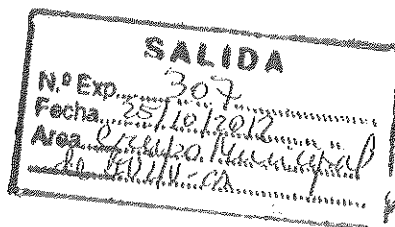 SALIDA
N.º Exp. 307
Fecha 25/10/2012
Area Grupo Municipal
de IULV-CA